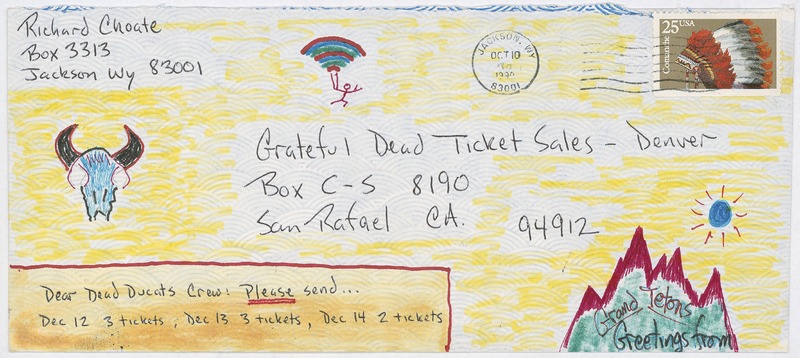 Richard Choate
Box 3313
Jackson Wy 83001
JACKSON, WY
OCT 10
1990
83001
25 USA
Comanche
Grateful Dead Ticket Sales - Denver
Box C-S 8190
San Rafael CA. 94912
Dear Dead Ducats Crew: Please send...
Dec 12 3 tickets, Dec 13 3 tickets, Dec 14 2 tickets
Grand Tetons
Greetings from